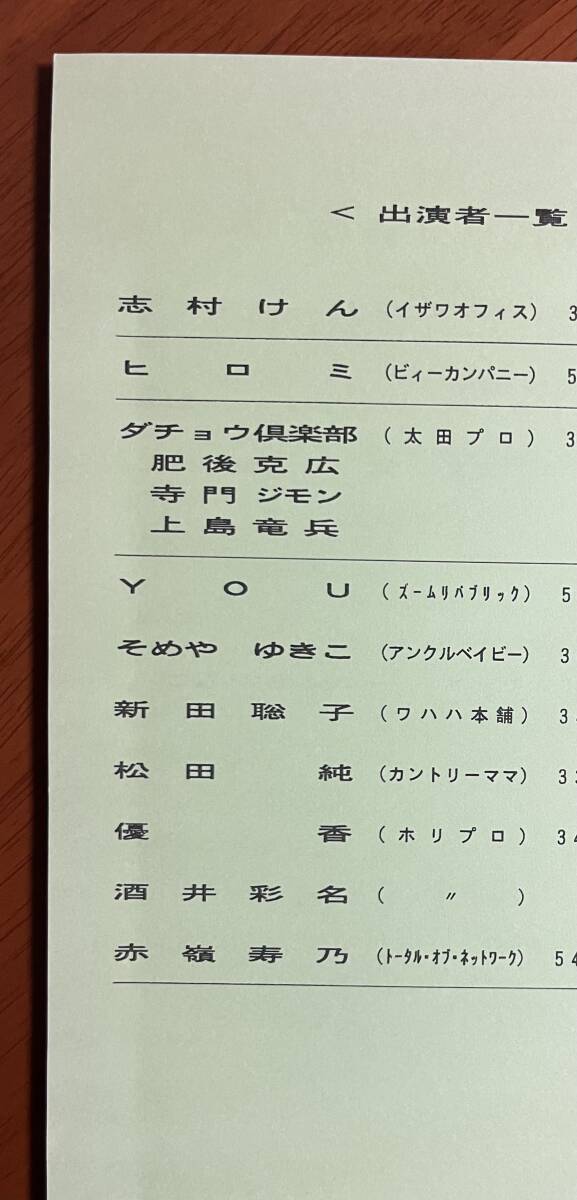 < 出演者一覧
志村けん (イザワオフィス) 3
ヒロミ (ビィーカンパニー) 5
ダチョウ倶楽部 (太田プロ) 3
肥後克広
寺門ジモン
上島竜兵
YOU (ズームリパブリック) 5
そめや ゆきこ (アンクルベイビー) 3
新田聡子 (ワハハ本舗) 3
松田純 (カントリーママ) 33
優香 (ホリプロ) 34
酒井彩名 ( 〃 )
赤嶺寿乃 (トータル・オブ・ネットワーク) 54